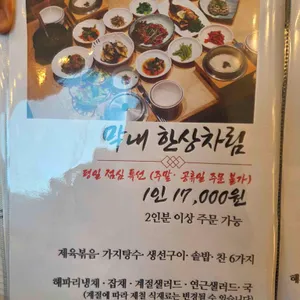 막내 한상차림
평일 점심 특선 (주말· 공휴일 주문 불가)
1인 17,000원
2인분 이상 주문 가능
제육볶음· 가지탕수· 생선구이· 솥밥· 찬 6가지
해파리냉채 · 잡채 · 계절샐러드 · 연근샐러드· 국
(계절에 따라 제철 식재료는 변경될 수 있습니다)